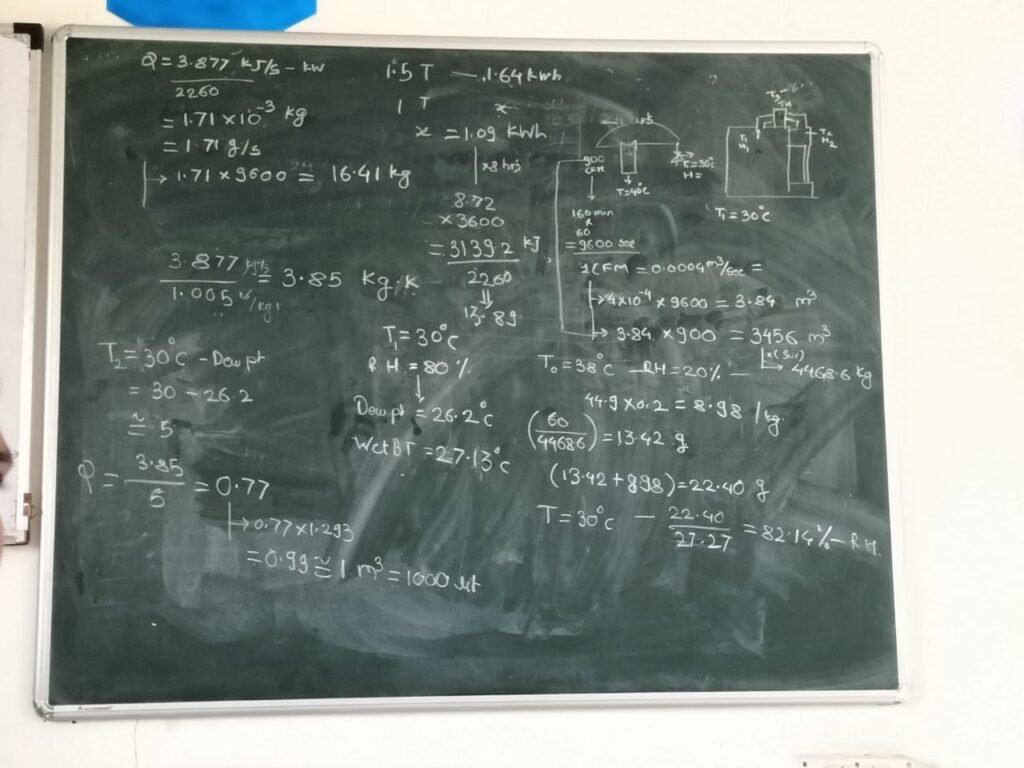 Q = 3.877 kJ/s - kW
2260
= 1.71 × 10⁻³ kg
= 1.71 g/s
→ 1.71 × 9600 = 16.41 kg
3.877 kJ/s = 3.85 Kg.K
1.005
T₂ = 30°C - Dew pt
= 30 - 26.2
≅ 5
Q = 3.85 = 0.77
5
→ 0.77 × 1.293
= 0.99 ≅ 1 m³ = 1000 lit
1.5 T — 1.64 kWh
1 T x
x = 1.09 KWh
×8 hrs
8.72
×3600
= 31392 kJ
2260
⇓
13.89
T₁ = 30°C
RH = 80%
↓
Dew pt = 26.2°C
Wet BT = 27.13°C
900
CFM
T = 40°C
T = 30°C
H =
160 min
×
60
= 9600 sec
1 CFM = 0.0004 m³/sec =
→ 4×10⁻⁴ × 9600 = 3.84 m³
→ 3.84 × 900 = 3456 m³
→ 4468.6 Kg
T₀ = 38°C — RH = 20% —
44.9 × 0.2 = 8.98 /kg
(60/44686) = 13.42 g
(13.42 + 898) = 22.40 g
T = 30°C — 22.40 = 82.14% - RH.
27.27
T₁
H₁
T₂
H₂
T₁ = 30°C